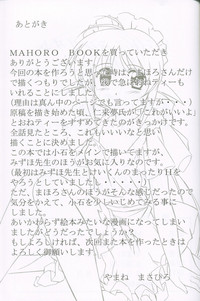 あとがき
MAHORO BOOKを買っていただき
ありがとうございます。
今回の本を作ろうと思った時は、まほろさんだけ
で描くつもりでしたが、で急におねティーも
いれることになりました。
(理由は真ん中のページでも言ってますが・・・)
原稿を描き始めた頃に、仁来夢氏が「これがいいよ」
とおねティーをすすめてきたのがきっかけです。
全話見たところ、これもいいな〜と思い
描くことに決めました。
この本では小石をメインで描いてますが、
みずほ先生のほうがお気に入りなのです。
(最初はみずほ先生とけいくんのまったりH を
やろうとしていました・・・)
ただ「まほろさんのほうがそんな感じだったので
気分をかえて、小石を少しいじめてみる事に
しました。
あいかわらず絵本みたいな漫画になってしまい
ましたがどうだったでしょうか？
もしよろしければ、次回また本を作ったときは
よろしく御願いします。
やまね まさひろ